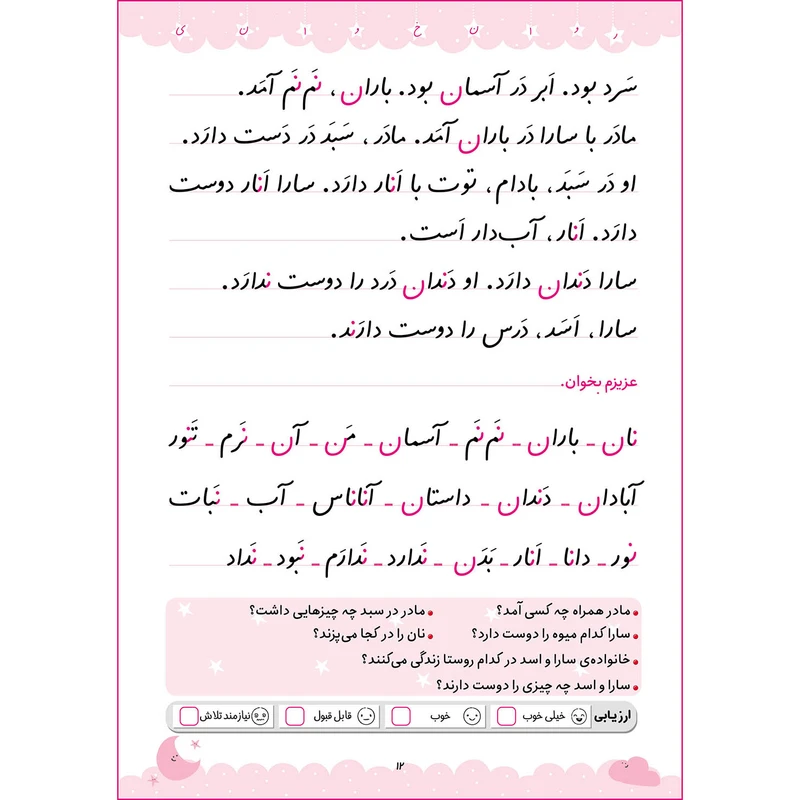 ر و ا ن خ و ا ن ی
سَرد بود. اَبر دَر آسمان بود. باران، نَم‌نَم آمَد.
مادَر با سارا دَر باران آمَد. مادَر، سَبَد دَر دَست دارَد.
او دَر سَبَد، بادام، توت با اَنار دارَد. سارا اَنار دوست
دارَد. اَنار، آب‌دار اَست.
سارا دَندان دارَد. او دَندان دَرد را دوست ندارَد.
سارا، اَسَد، دَرس را دوست دارَند.
عزیزم بخوان.
نان - باران - نَم‌نَم - آسمان - مَن - آن - نَرم - تَنور
آبادان - دَندان - داستان - آناناس - آب - نَبات
نور - دانا - اَنار - بَدَن - نَدارد - نَدارَم - نَبود - نَداد
مادر همراه چه کسی آمد؟ مادر در سبد چه چیزهایی داشت؟
سارا کدام میوه را دوست دارد؟ نان را در کجا می‌پزند؟
خانواده‌ی سارا و اسد در کدام روستا زندگی می‌کنند؟
سارا و اسد چه چیزی را دوست دارند؟
ارزیابی خیلی خوب خوب قابل قبول نیازمند تلاش
۱۲